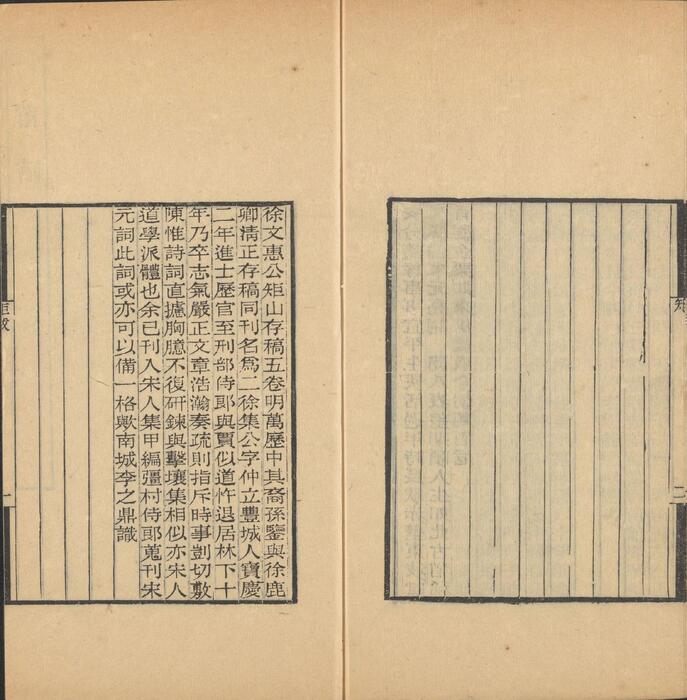 徐文惠公矩山存稿五卷明萬歷中其裔孫鑒與徐鹿
卿淸正存稿同刊名爲二徐集公字仲立豐城人寶慶
二年進士歷官至刑部侍郎與賈似道忤退居林下十
年乃卒志氣嚴正文章浩瀚奏疏則指斥時事剴切敷
陳惟詩詞直攄胸臆不復研鍊與擊壤集相似亦宋人
道學派體也余已刊入宋人集甲編彊村侍郎蒐刊宋
元詞此詞或亦可以備一格歟南城李之鼎識
一
二